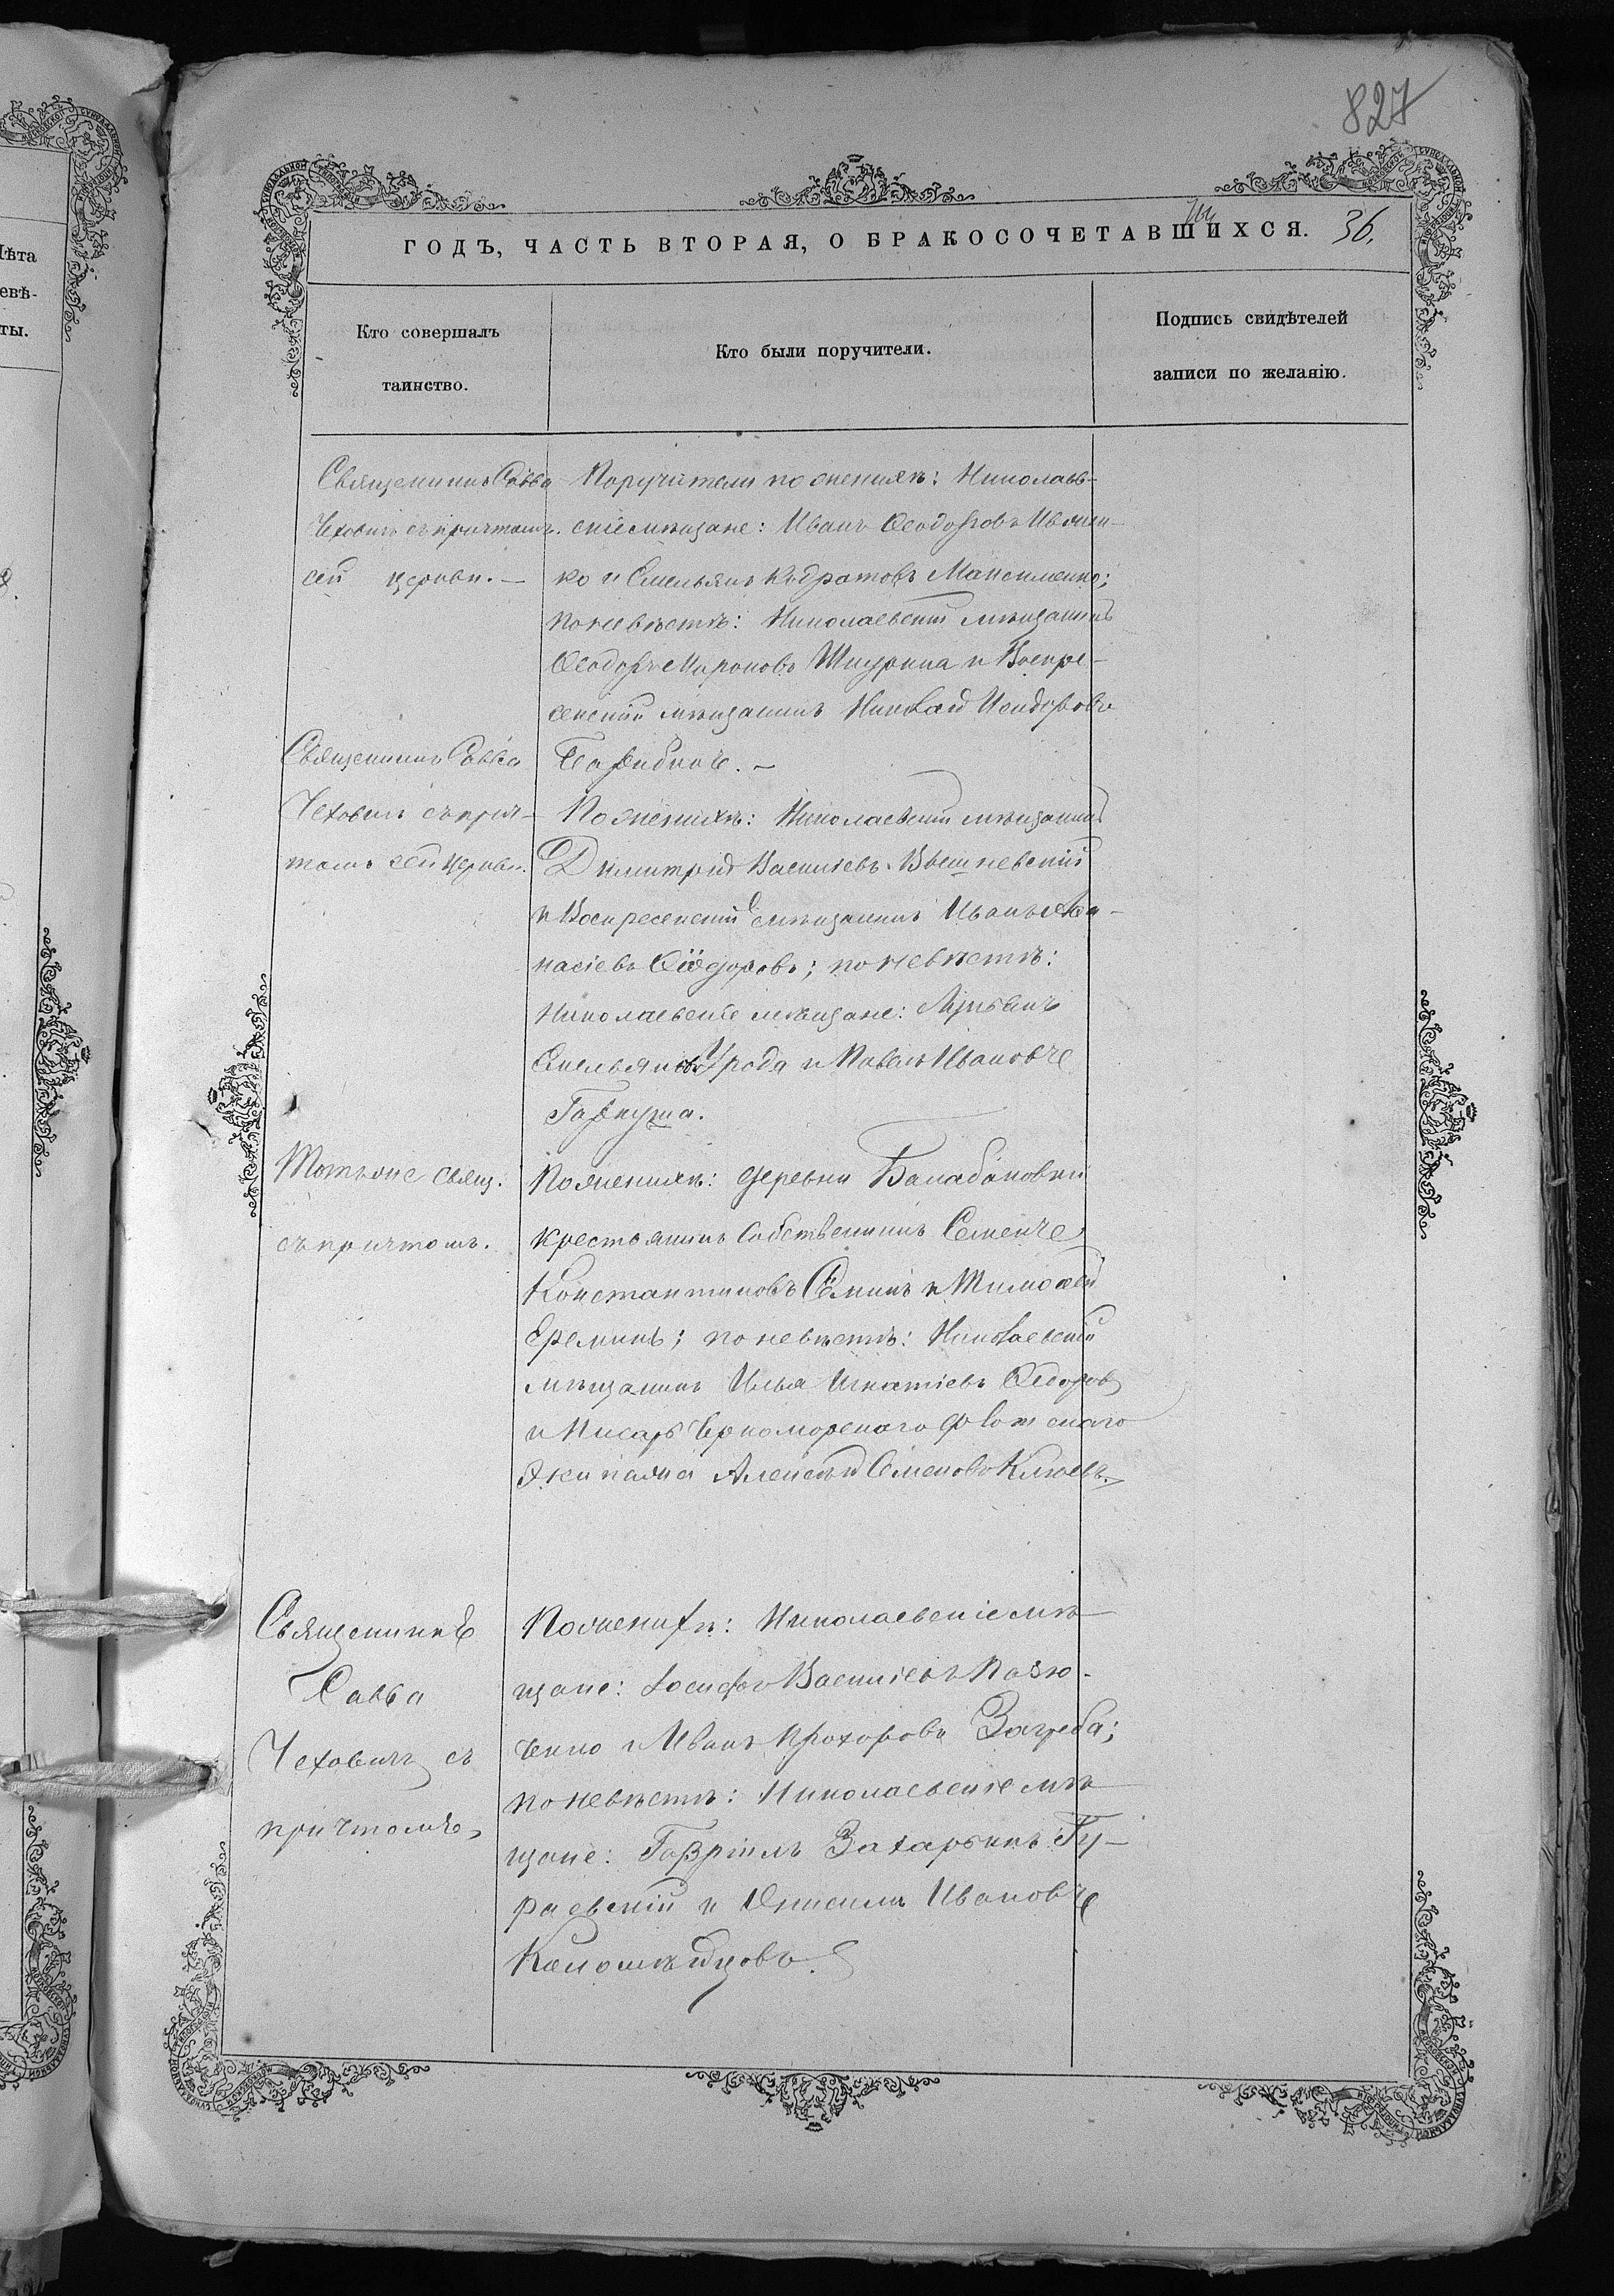 827
ГОДЪ, ЧАСТЬ ВТОРАЯ, О БРАКОСОЧЕТАВШИХСЯ. 36.
Кто совершалъ
таинство.
Кто были поручители.
Подпись свидѣтелей
записи по желанію.
Священникъ Савва
Чеховичъ съ причтомъ
сей церкви. —
Поручители по женихѣ: Николаев-
скіе мѣщане: Иванъ Ѳеодоровъ Ивчен-
ко и Емельянъ Кодратовъ Максименко;
по невѣстѣ: Николаевскій мѣщанинъ
Ѳеодоръ Мироновъ Шкурина и Воскре-
сенскій мѣщанинъ Николай Исидоровъ
Священникъ Савва
Чеховичъ съ прич-
томъ сей церкви.
По женихѣ: Николаевскій мѣщанинъ
Димитрій Васильевъ Вышневскій
и Воскресенскій мѣщанинъ Иванъ Аѳа-
насіевъ Ѳедоровъ; по невѣстѣ:
Николаевскіе мѣщане: Лукьянъ
Емельяновъ Урода и Павелъ Ивановъ
Гаркуша.
Тотъ же свящ.
съ причтомъ.
По женихѣ: деревни Балабановки
крестьянинъ собственникъ Семенъ
Константиновъ Сёминъ и Тимоѳей
Ереминъ; по невѣстѣ: Николаевскій
мѣщанинъ Илья Игнатіевъ Ѳедоровъ
и Писарь Черноморскаго флотскаго
Экипажа Алексѣй Семеновъ Клюевъ.
Священникъ
Савва
Чеховичъ съ
причтомъ
По женихѣ: Николаевскіе мѣ-
щане: Іосифъ Васильевъ Пазю-
ченко и Иванъ Прохоровъ Загреба;
по невѣстѣ: Николаевскіе мѣ-
щане: Гавріилъ Захарьинъ Гу-
раевскій и Онисимъ Ивановъ